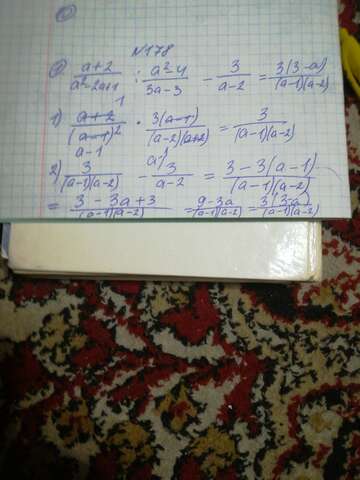 №178
a+2/a²-2a+1 : a²-4/3a-3 - 3/a-2 = 3(3-a)/(a-1)(a-2)
1) a+2/(a-1)² · 3(a-1)/(a-2)(a+2) = 3/(a-1)(a-2)
2) 3/(a-1)(a-2) - 3/a-2 = 3-3(a-1)/(a-1)(a-2)
= 3-3a+3/(a-1)(a-2) = 9-3a/(a-1)(a-2) = 3(3-a)/(a-1)(a-2)